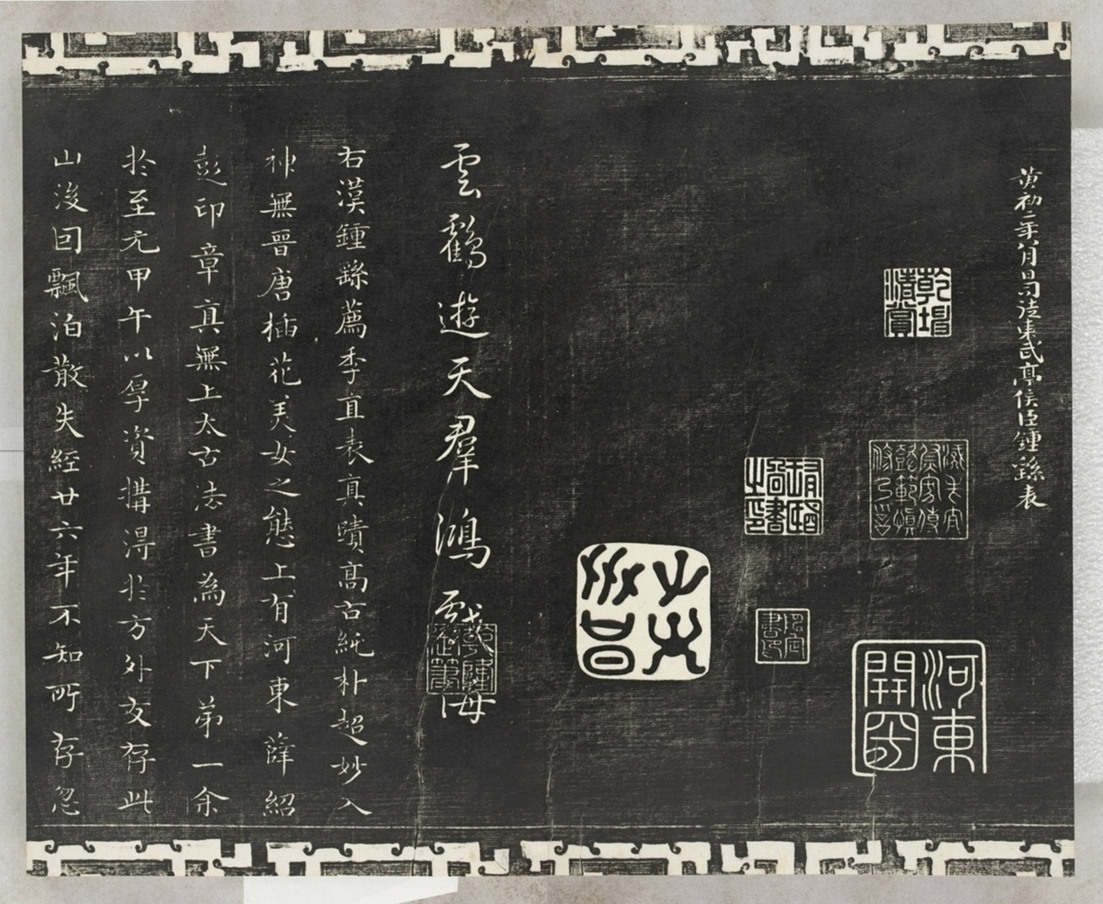 黄初二年八月日司徒東武亭侯臣鍾繇表
河東
開國
雲鶴遊天羣鴻戲海
右漢鍾繇薦季直表真蹟高古純朴超妙入
神無晉唐插花美女之態上有河東薛紹
彭印章真無上太古法書為天下第一余
於至元甲午以厚資購得於方外友存此
山後因飄泊散失經廿六年不知所存忽